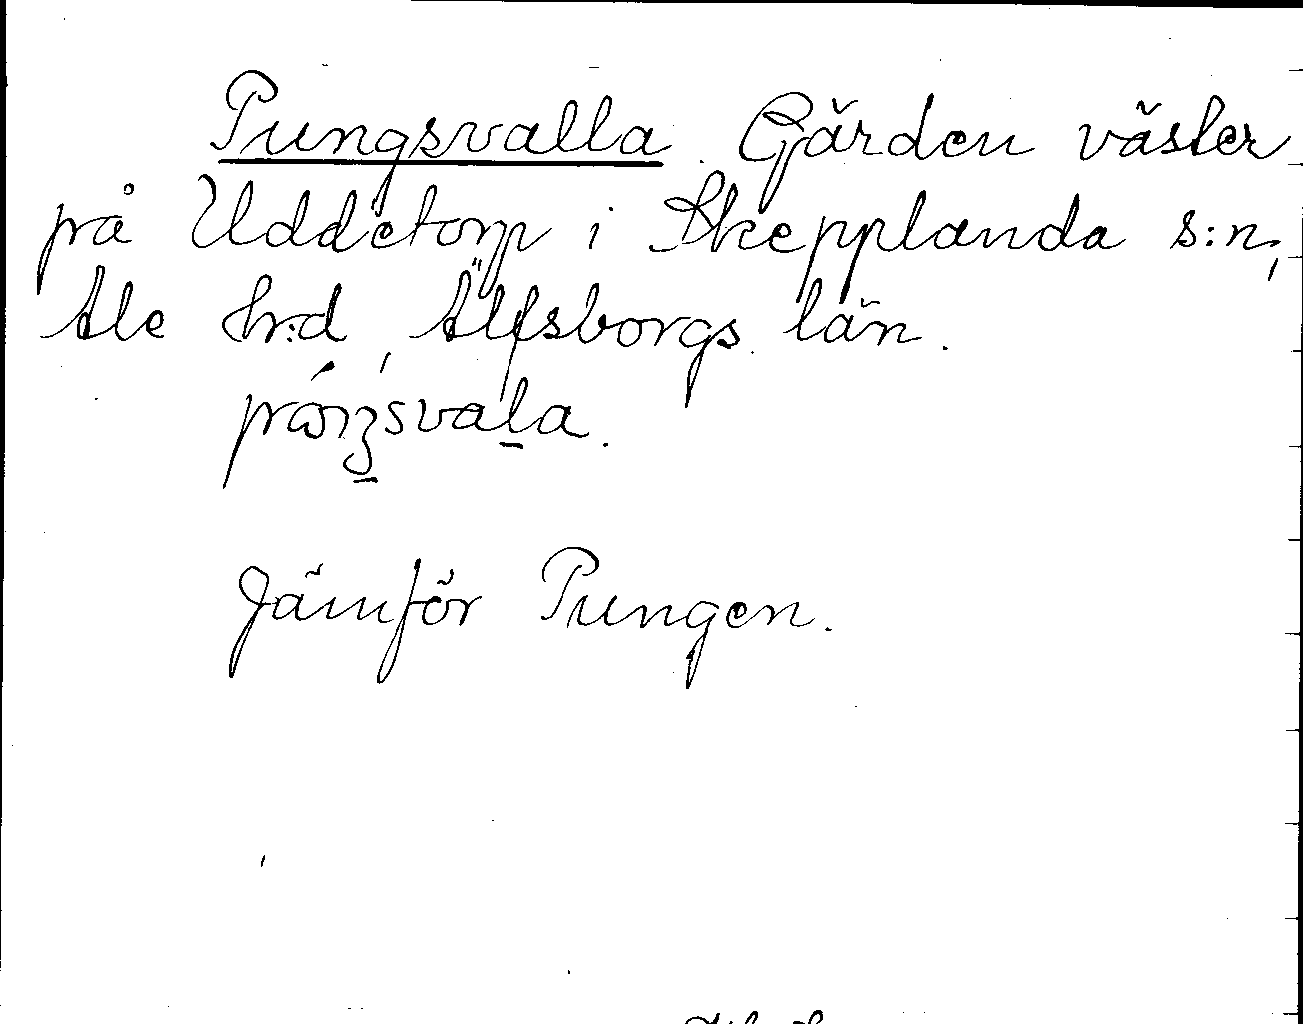 Pungsvalla. Gärden väster
på Uddetorp i Skepplanda s:n,
Ale hr:d, Älfsborgs län.
Jämför Pungen.